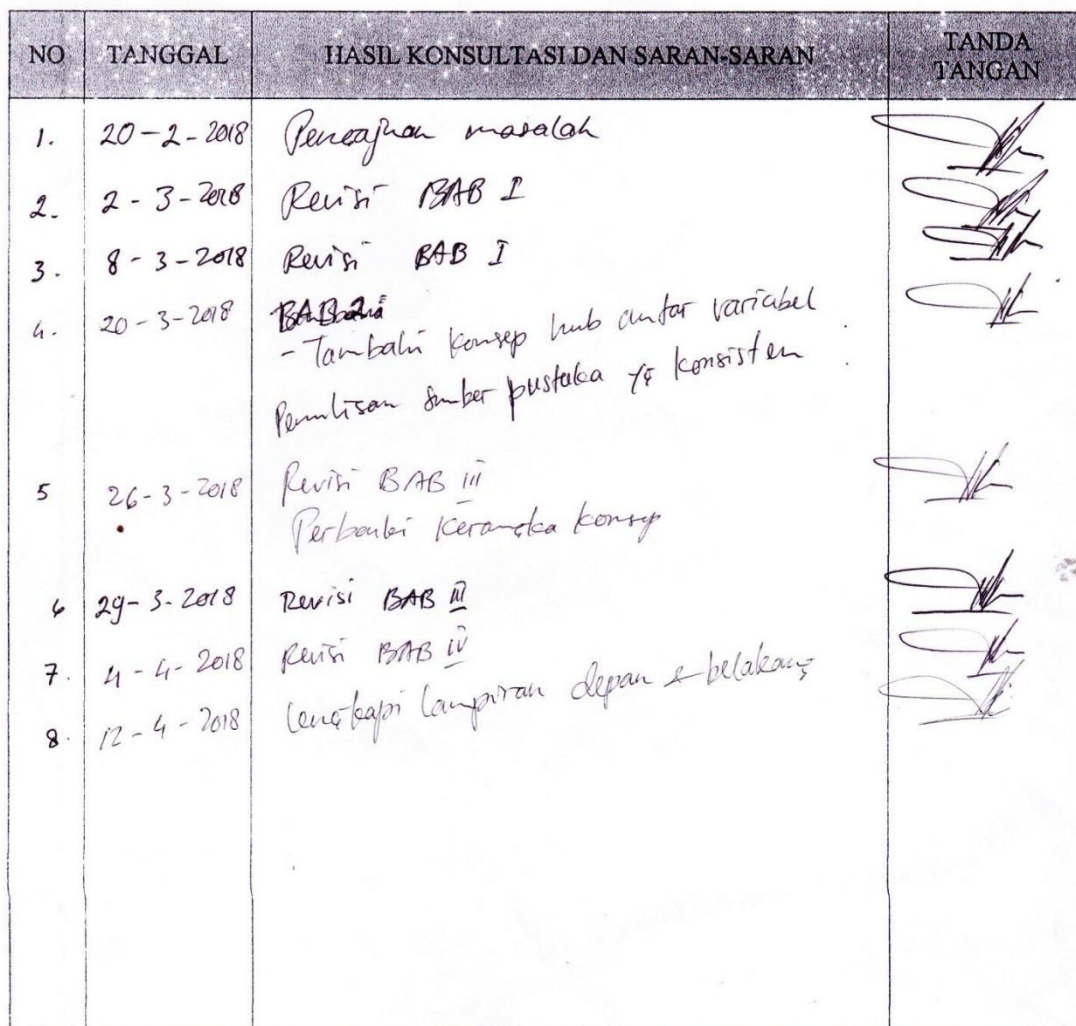 NO TANGGAL HASIL KONSULTASI DAN SARAN-SARAN TANDA TANGAN
1. 20-2-2018 masalah
2. 2-3-2018 Revisi BAB I
3. 8-3-2018 Revisi BAB I
4. 20-3-2018 BAB 2
- Tambahi konsep hub antar variabel
Penulisan sumber pustaka yg konsisten
5 26-3-2018 Revisi BAB iii
Perbaiki Kerangka konsep
6 29-3-2018 Revisi BAB iii
7. 4-4-2018 Revisi BAB iv
8. 12-4-2018 Lengkapi lampiran depan & belakang